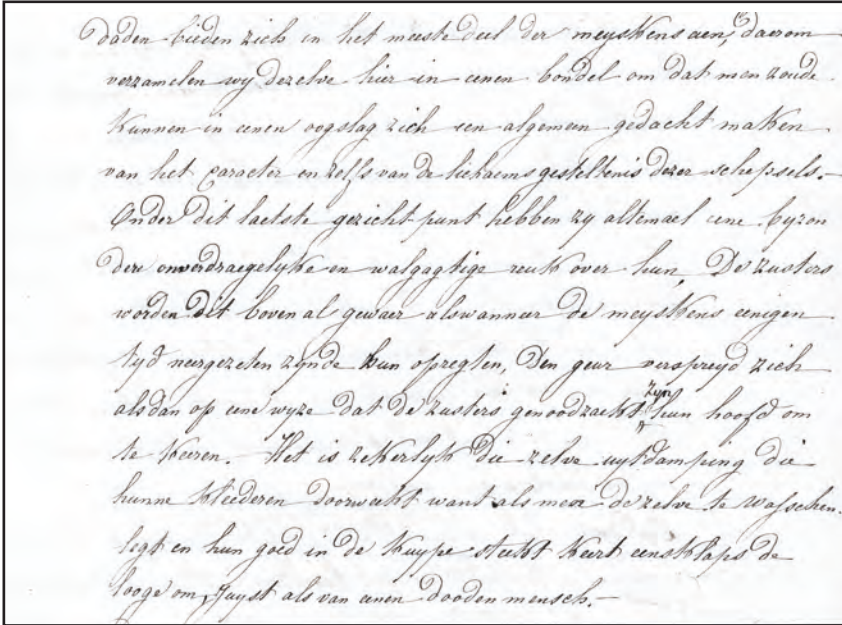 daden bieden zich in het meeste deel der meyskens aen, daerom
verzamelen wy dezelve hier in eenen bondel om dat men zoude
kunnen in eenen oogslag zich een algemeen gedacht maken
van het caracter en zelfs van de lichaems gesteltenis dezer schepsels.—
Onder dit laetste gezicht punt hebben zy altemael eene byzon
dere onverdraegelyke en walgagtige reuk over hun. De zusters
worden dit bovenal gewaer alswanneer de meyskens eenigen
tyd neergezeten zynde hun opregten, Den geur verspreyd zich
alsdan op eene wyze dat de zusters genoodzaekt zyn hun hoofd om
te keeren. Het is zekerlyk die zelve uytdamping die
hunne kleederen doorwekt want als men dezelve te wasschen
legt en hun goed in de kuype steekt keert eensklaps de
looge om, Juyst als van eenen dooden mensch.—